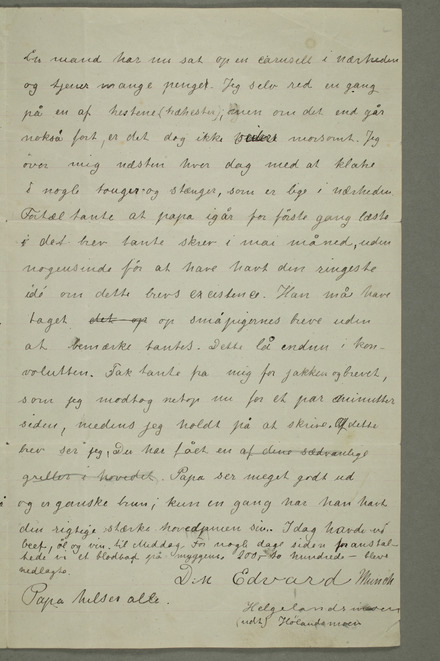 En mand har nu sat op en carusell i nærheden
og tjener mange penger. Jeg selv red en gang
på en af hestene (træhester); men om det end går
nokså fort, er det dog ikke videre morsomt. Jeg
øver mig næsten hver dag med at klatre
i nogle touger og stænger, som er lige i nærheden.
Fortæl tante at papa igår for første gang læste
i det brev tante skrev i mai måned, uden
nogensinde før at have havt den ringeste
idé om dette brevs excistence. Han må have
taget det op op småpigernes breve uden
at bemærke tantes. Dette lå endnu i kon-
volutten. Tak tante fra mig for jakken og brevet,
som jeg modtog netop nu for et par minutter
siden, medens jeg holdt på at skrive. Af dette
brev ser jeg, Du har fået en af dine sædvanlige
griller i hovedet. Papa ser meget godt ud
og er ganske brun; kun en gang har han havt
den rigtige stærke hovedpinen sin. Idag havde vi
beef, øl og vin til Middag. For nogle dage siden anstal-
tede vi et blodbad på myggene. 200, to hundrede - blev
nedlagte.
D.M Edvard Munch
Papa hilser alle.
Helgelandsmoen
(udt) Hølandsmoen